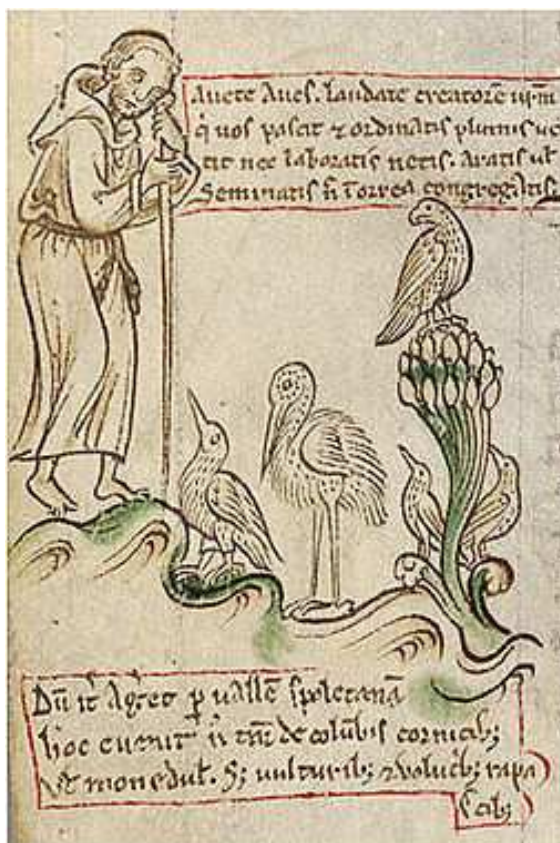 Auete Aues. laudate creatorē
q̇ uos pascit ⁊ ordinatis plumis ue
tit nec laboratis netis. Aratis ul̄
Seminatis n̄ I orrea congregatis
Dū it̓ Ag̓ret ꝑ uallē spoletanā
hoc euenit n̄ tm̄ de colūbis cornicib;
monedul̓. S; uulturib; ⁊ uolucb; rapa
cib;